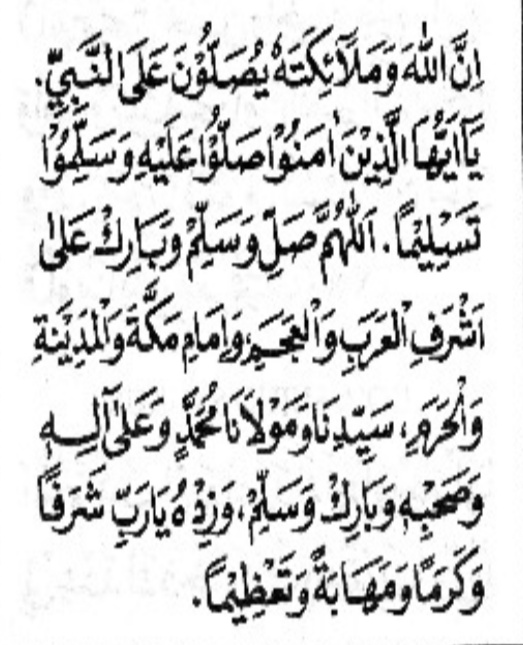 اِنَّ اللّٰهَ وَمَلَآئِكَتَهُ يُصَلُّوْنَ عَلَى النَّبِيِّ.
يَآاَيُّهَا الَّذِيْنَ اٰمَنُوْا صَلُّوْا عَلَيْهِ وَسَلِّمُوْا
تَسْلِيْمًا. اَللّٰهُمَّ صَلِّ وَسَلِّمْ وَبَارِكْ عَلٰى
اَشْرَفِ الْعَرَبِ وَالْعَجَمِ، وَاِمَامِ مَكَّةَ وَالْمَدِيْنَةِ
وَالْحَرَمِ، سَيِّدِنَا وَمَوْلَانَا مُحَمَّدٍ وَعَلٰى آلِهِ
وَصَحْبِهِ وَبَارِكْ وَسَلِّمْ، وَزِدْهُ يَارَبِّ شَرَفًا
وَكَرَمًا وَمَهَابَةً وَتَعْظِيْمًا.